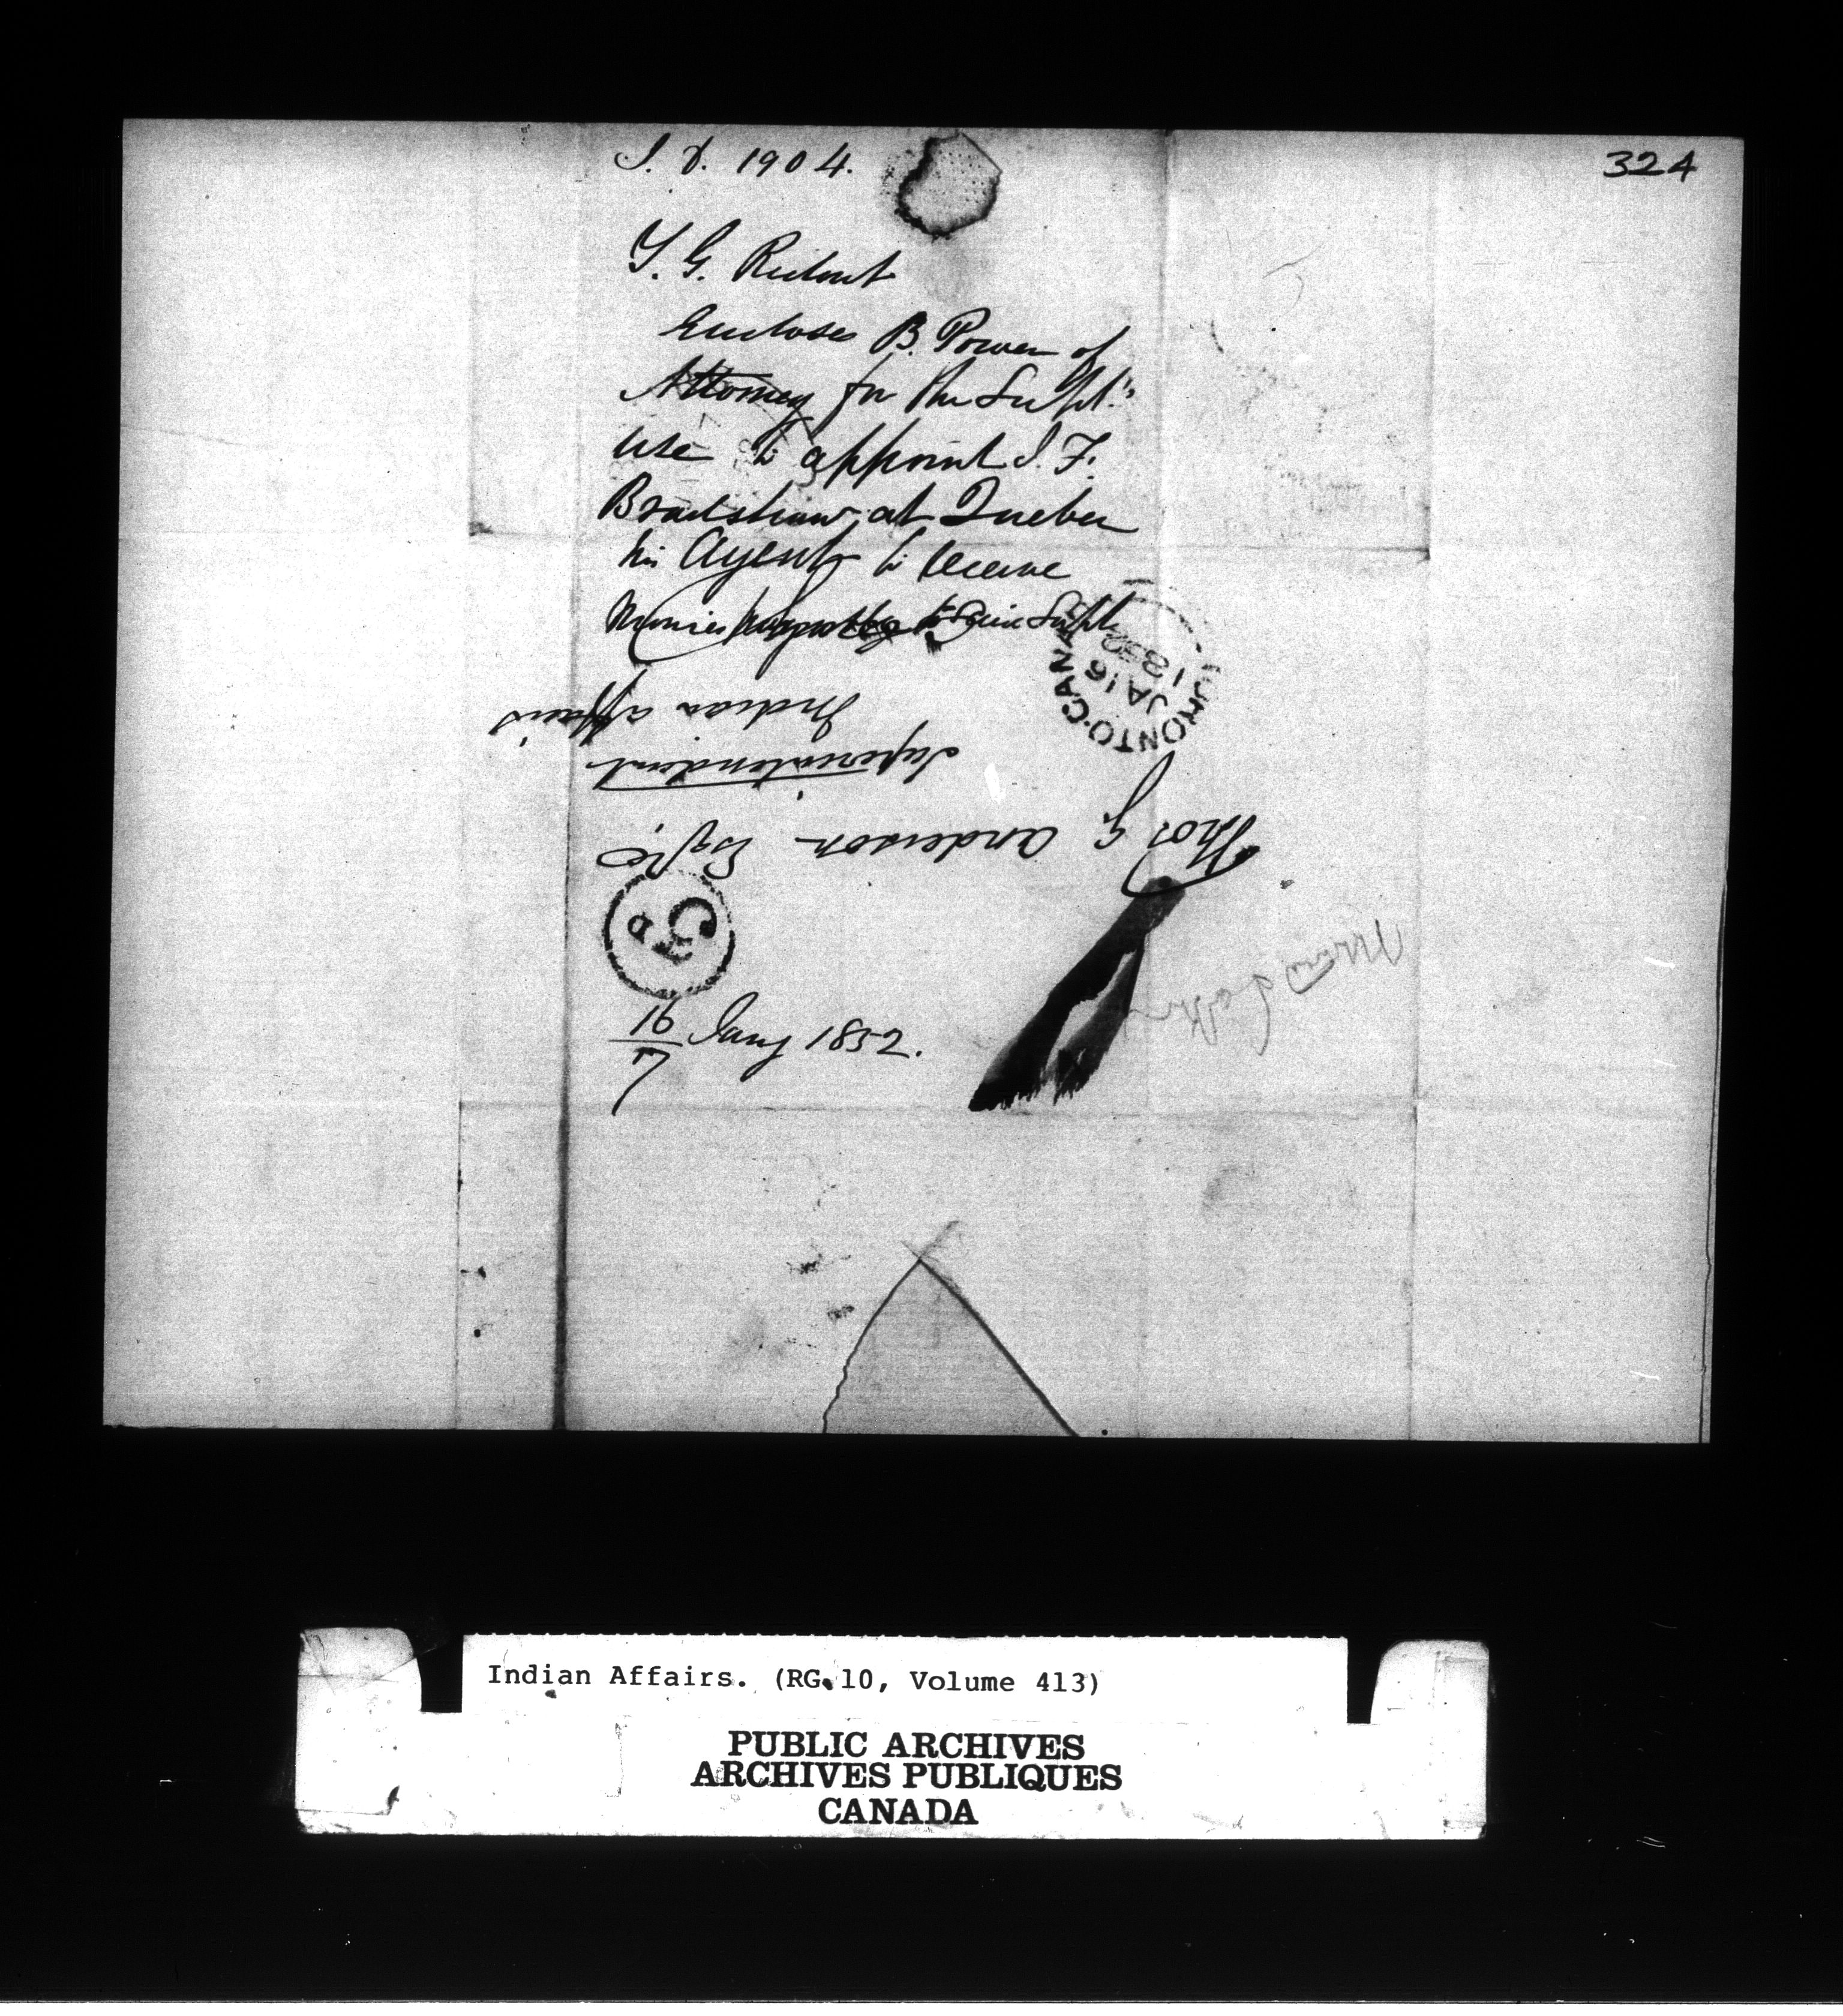 324
I. D. 1904.
T. G. Ridout
Encloses B. Power of
Attorney for the Supt.'s
use to appoint J. F.
Bradshaw at Quebec
his Agent to receive
Monies payable to Supt
TORONTO. CANADA
JA 16
1852
Thos G. Anderson Esqre
Superintendent
Indian Affairs
3 D
16/7 Jany 1852.
Indian Affairs. (RG 10, Volume 413)
PUBLIC ARCHIVES
ARCHIVES PUBLIQUES
CANADA